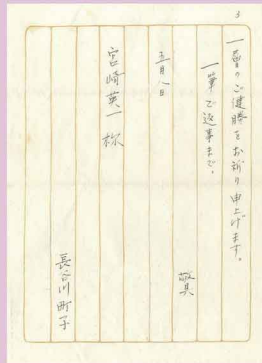 3
一層のご健勝をお祈り申上げます。
一筆ご返事まで。
敬具
五月八日
宮崎英一様
長谷川町子